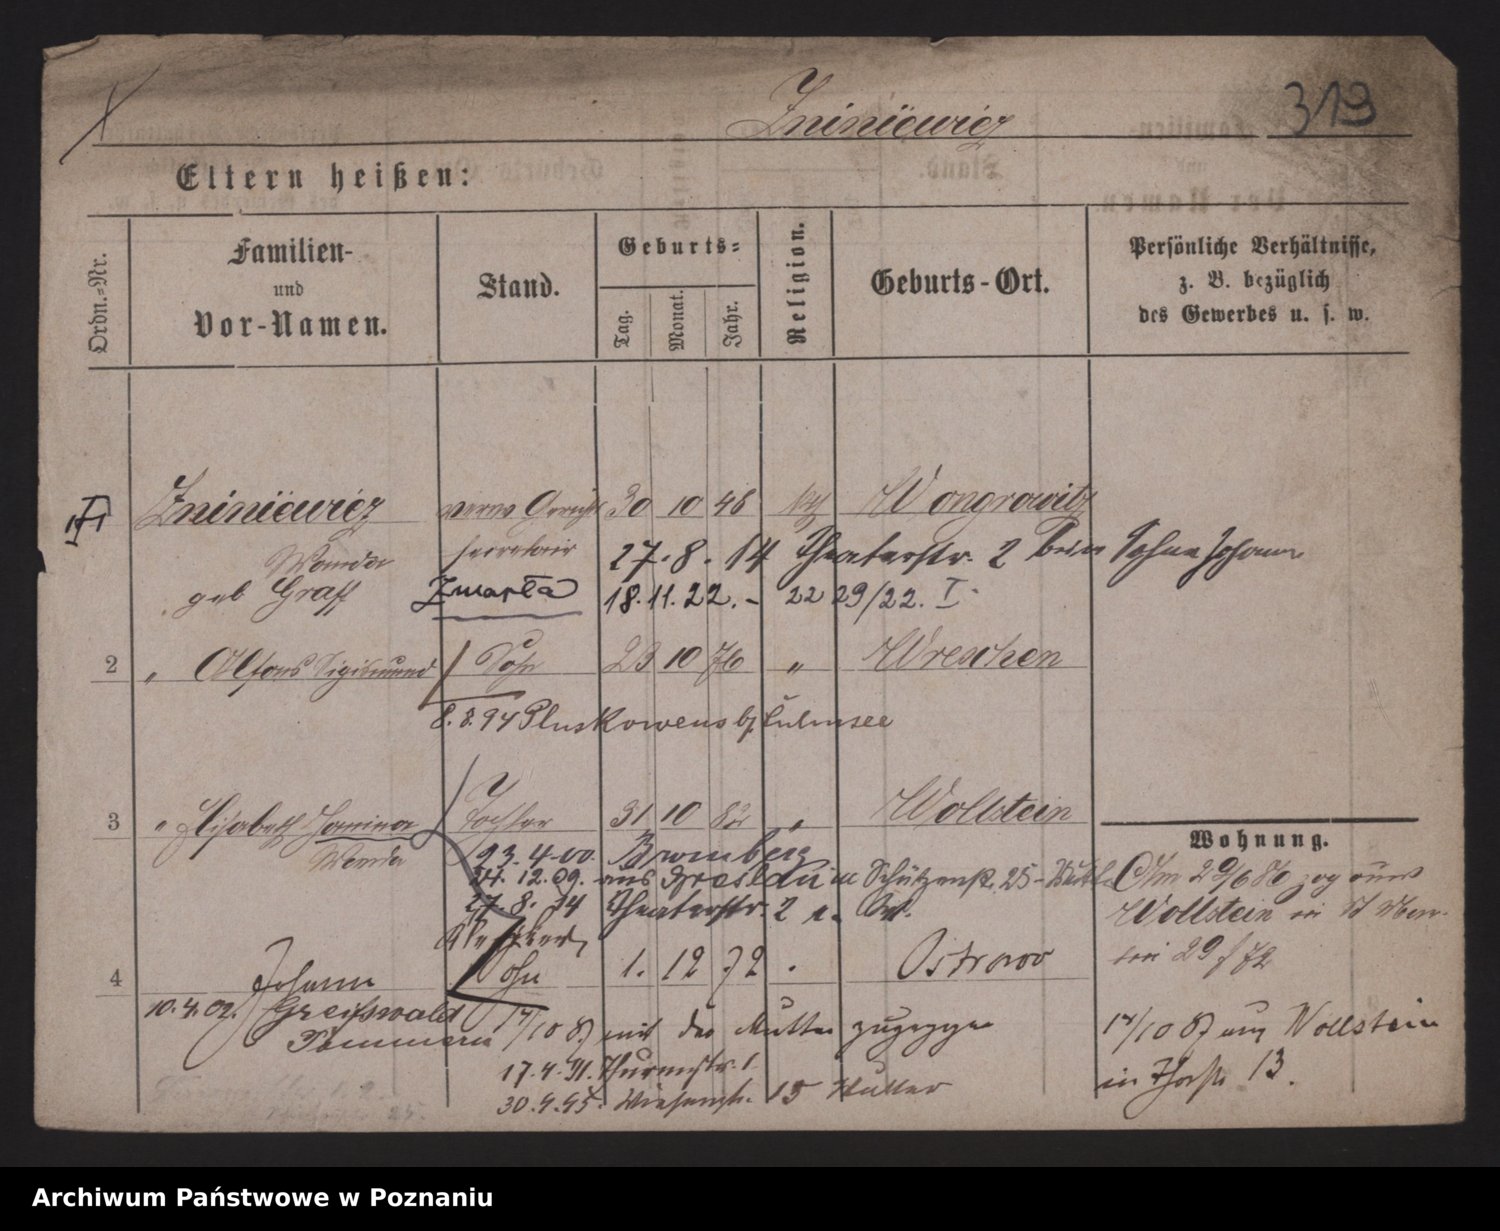 Zniniewicz
319
Eltern heißen:
Ordn.-Nr.
Familien-
und
Vor-Namen.
Stand.
Geburts-
Tag.
Monat.
Jahr.
Religion.
Geburts-Ort.
Persönliche Verhältnisse,
z. B. bezüglich
des Gewerbes u. s. w.
Zniniewicz 30 10 46 kath Wongrowitz
Wanda secretair 27.8.14 Theaterstr. 2 beim Sohne Johann
geb Graff Zmarła 18.11.22. - 22 29/22. I.
2 " Alfons Sigismund Sohn 23 10 76 " Wreschen
8.8.94 Pluskowens b/ Culmsee
3 " Elisabeth Janina Tochter 31 10 82 " Wollstein
Wanda 23.4.00. Bromberg
24.12.09. aus Breslau Schützenstr. 25 - Mutter
27.8.14 Theaterstr. 2 b. Br.
Wohnung.
29/6 86 zog aus
Wollstein
4 Johann Sohn 1. 12 72 . Ostrowo
10.4.02. Greifswald
Pommern 14/10 87 mit der Mutter zugezogen
14/10 87 aus Wollstein
in 13.
17.4.91. Thurmstr. 1.
30.9.95. Wiesenstr. 15 Mutter
Archiwum Państwowe w Poznaniu